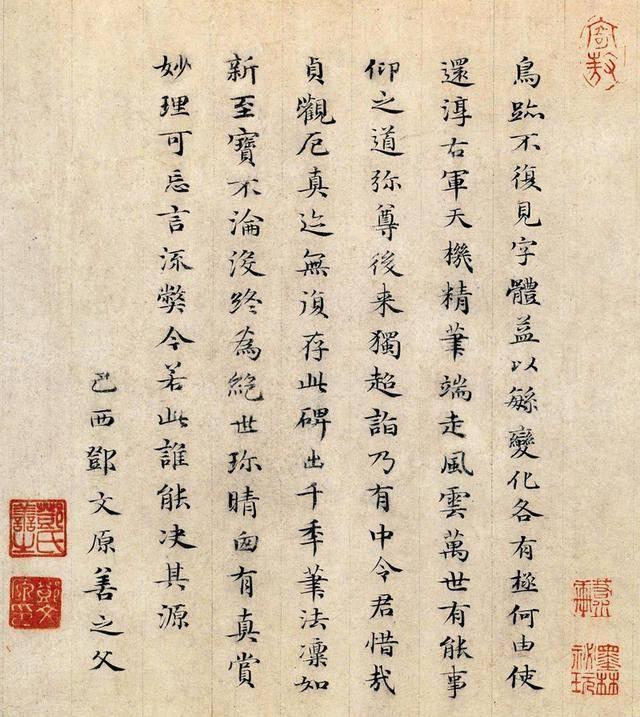 鳥跡不復見字體益以緐變化各有極何由使
還淳右軍天機精筆端走風雲萬世有能事
仰之道弥尊後来獨超詣乃有中令君惜哉
貞觀厄真迹無復存此碑出千年筆法凛如
新至寶不淪没終為絕世珍晴窗有真賞
妙理可忘言流弊今若此誰能决其源
己酉鄧文原善之父
墨林祕玩